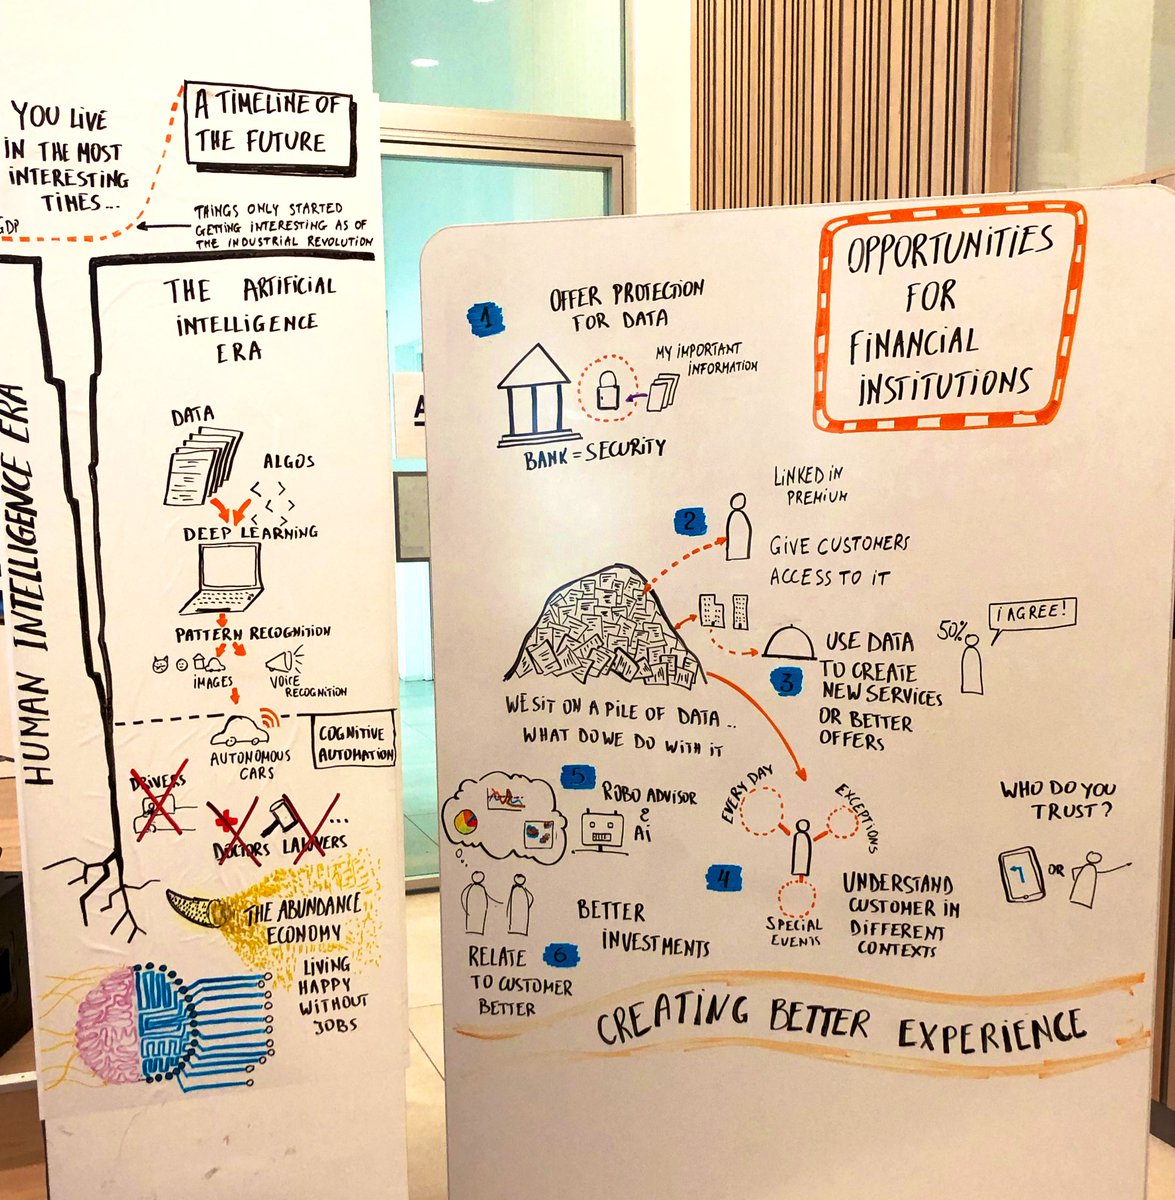 YOU LIVE
IN THE MOST
INTERESTING
TIMES...
A TIMELINE OF
THE FUTURE
GDP
THINGS ONLY STARTED
GETTING INTERESTING AS OF
THE INDUSTRIAL REVOLUTION
HUMAN INTELLIGENCE ERA
THE ARTIFICIAL
INTELLIGENCE
ERA
DATA
ALGOS
DEEP LEARNING
PATTERN RECOGNITION
IMAGES
VOICE
RECOGNITION
COGNITIVE
AUTOMATION
AUTONOMOUS
CARS
DRIVERS
DOCTORS LAWYERS
...
THE ABUNDANCE
ECONOMY
LIVING
HAPPY
WITHOUT
JOBS
OPPORTUNITIES
FOR
FINANCIAL
INSTITUTIONS
1
OFFER PROTECTION
FOR DATA
MY IMPORTANT
INFORMATION
BANK = SECURITY
2
LINKED IN
PREMIUM
GIVE CUSTOMERS
ACCESS TO IT
WE SIT ON A PILE OF DATA..
WHAT DO WE DO WITH IT
3
USE DATA
TO CREATE
NEW SERVICES
OR BETTER
OFFERS
50%
I AGREE!
EVERY DAY
EXCEPTIONS
SPECIAL
EVENTS
4
UNDERSTAND
CUSTOMER IN
DIFFERENT
CONTEXTS
WHO DO YOU
TRUST?
OR
5
ROBO ADVISOR
&
Ai
BETTER
INVESTMENTS
RELATE
6
TO CUSTOMER
BETTER
CREATING BETTER EXPERIENCE